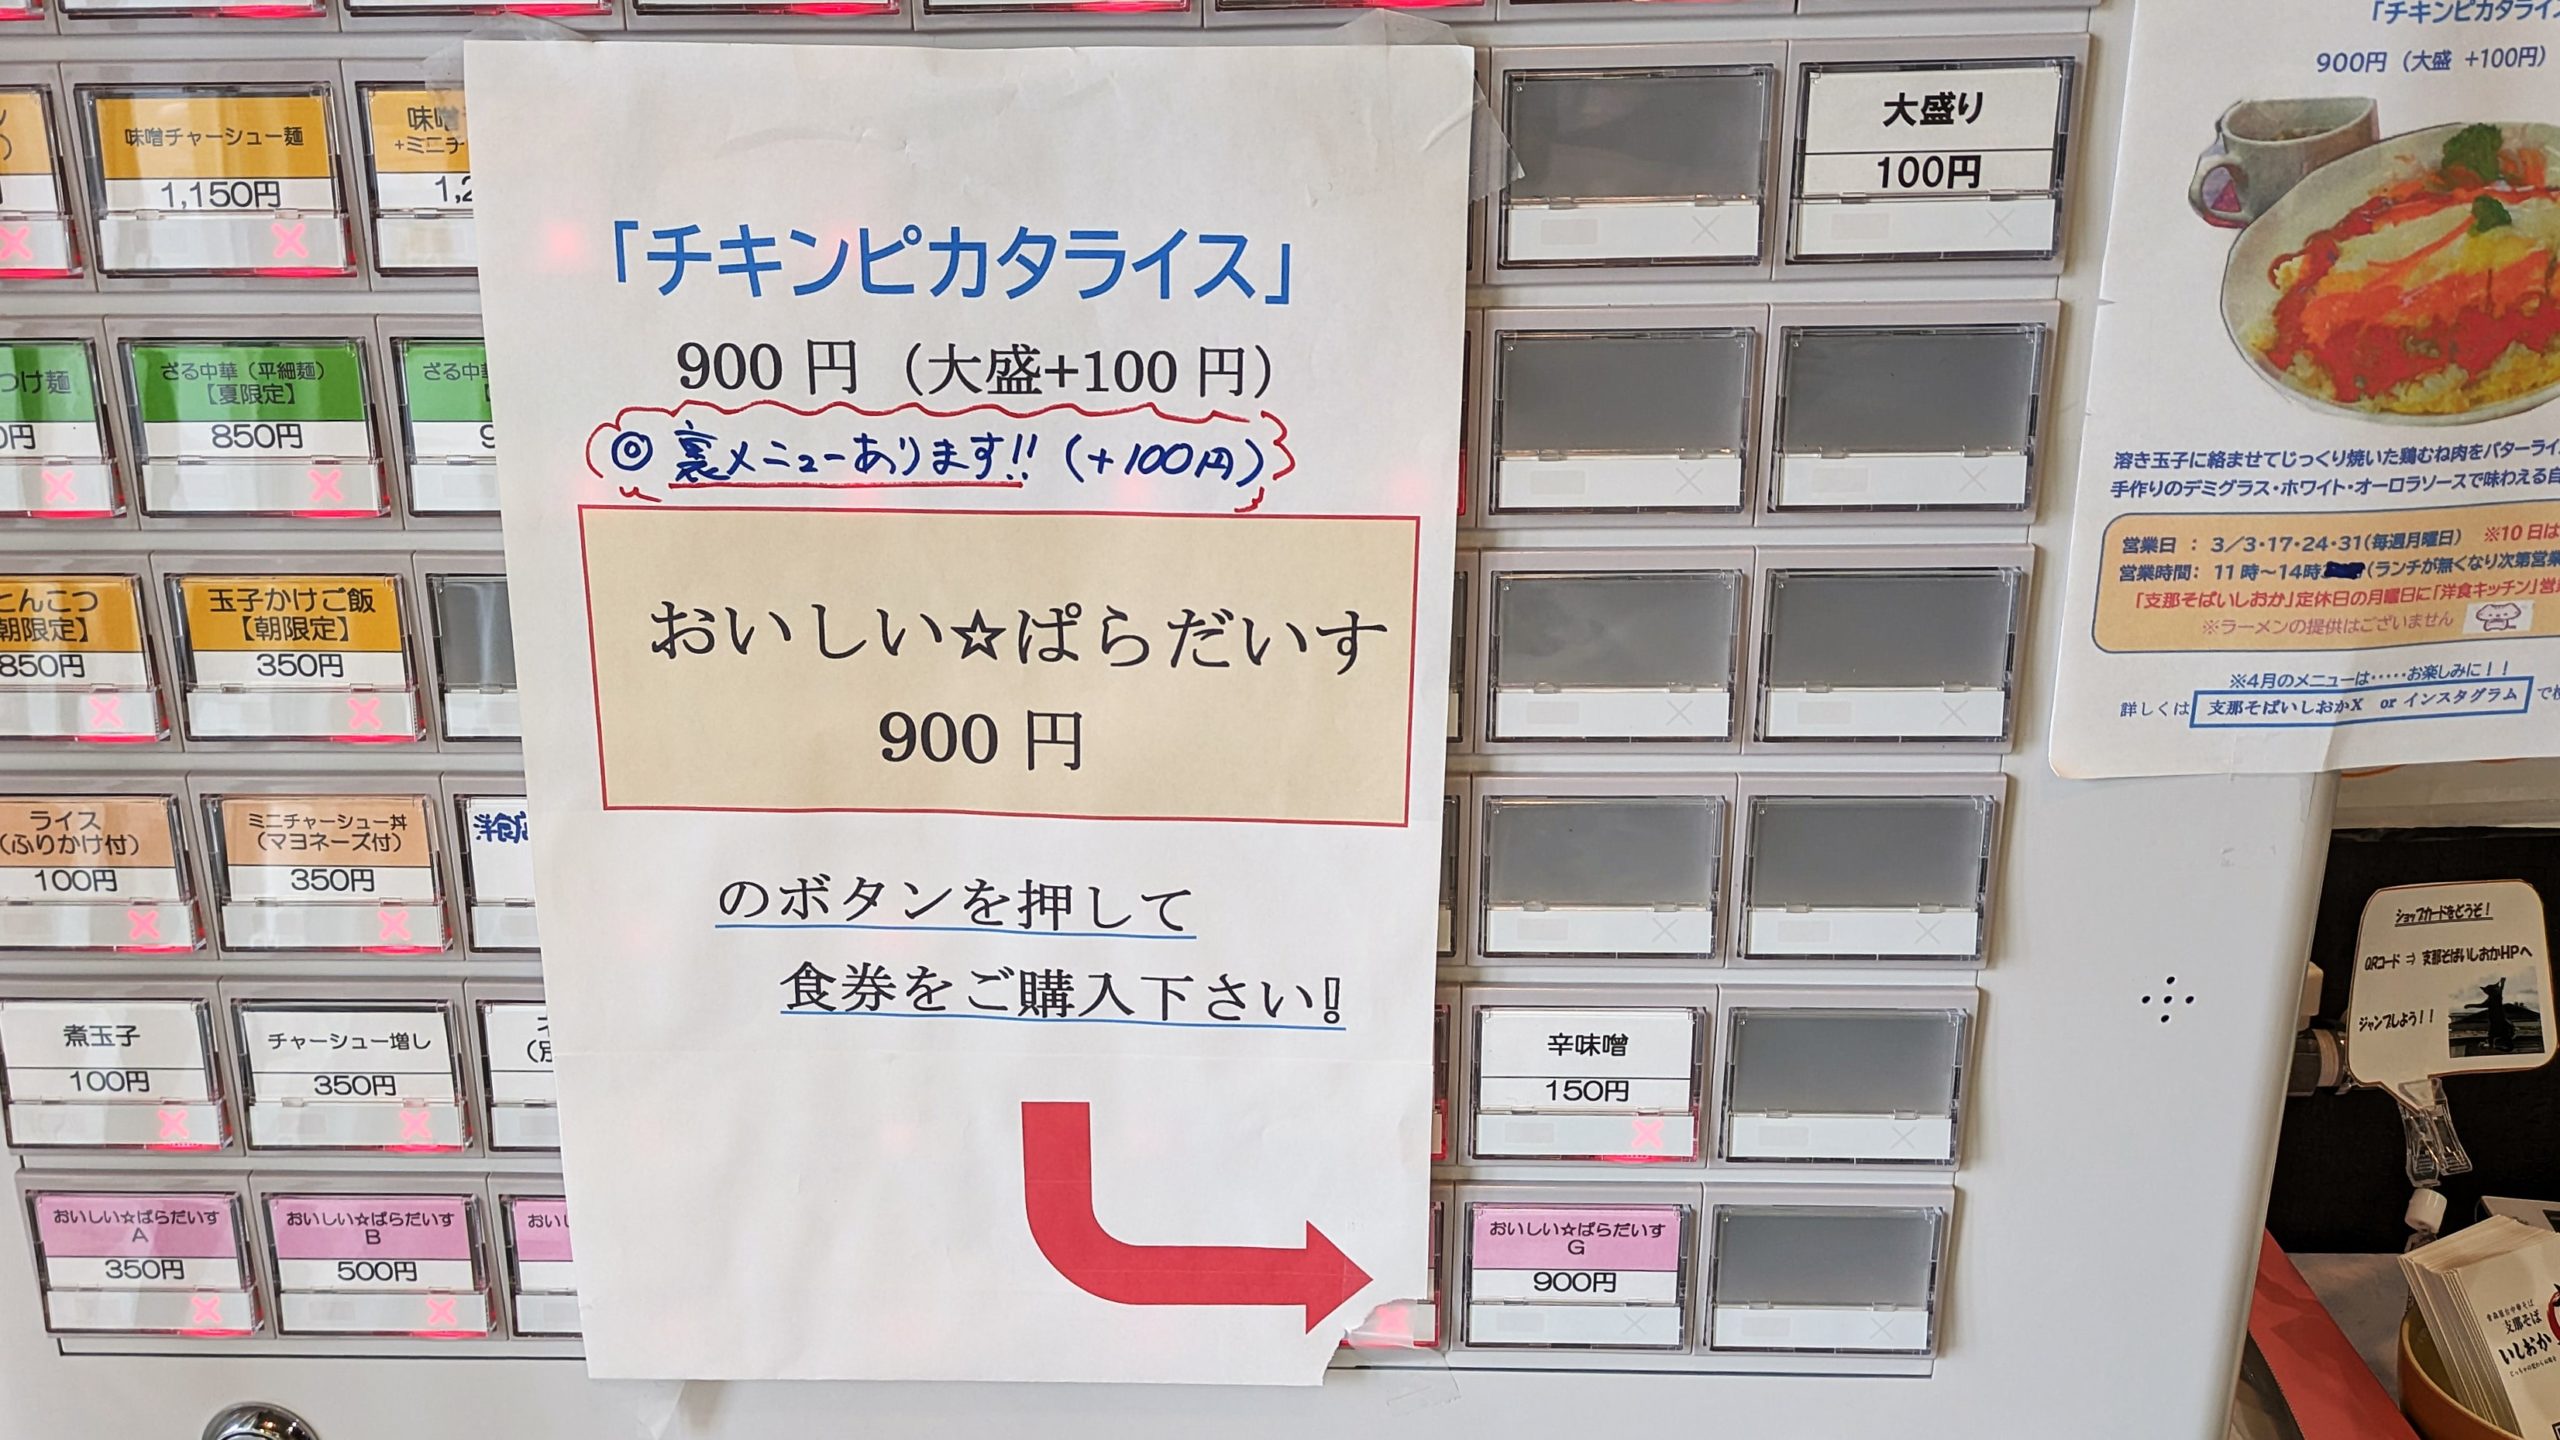 味噌チャーシュー麺
1,150円
味噌
+ミニチ
1,2
つけ麺
0円
ざる中華（平細麺）
【夏限定】
850円
ざる中
9
とんこつ
朝限定】
850円
玉子かけご飯
【朝限定】
350円
ライス
（ふりかけ付）
100円
ミニチャーシュー丼
（マヨネーズ付）
350円
洋食
煮玉子
100円
チャーシュー増し
350円
おいしい☆ぱらだいす
A
350円
おいしい☆ぱらだいす
B
500円
おいし
「チキンピカタライス」
900 円（大盛+100 円）
◎ 裏メニューあります!!（+100円）
おいしい☆ぱらだいす
900 円
のボタンを押して
食券をご購入下さい！
大盛り
100円
辛味噌
150円
おいしい☆ぱらだいす
G
900円
「チキンピカタライス
900円（大盛 +100円）
溶き玉子に絡ませてじっくり焼いた鶏むね肉をバターライ
手作りのデミグラス・ホワイト・オーロラソースで味わえる
営業日 ： 3／3・17・24・31（毎週月曜日） ※10日は
営業時間： 11時～14時（ランチが無くなり次第営業
「支那そばいしおか」定休日の月曜日に「洋食キッチン」営
※ラーメンの提供はございません
※4月のメニューは・・・・・お楽しみに！！
詳しくは 支那そばいしおかX or インスタグラム で検
ショップカードをどうぞ！
QRコード ⇒ 支那そばいしおかHPへ
ジャンプしよう！！
支那そば
いしおか